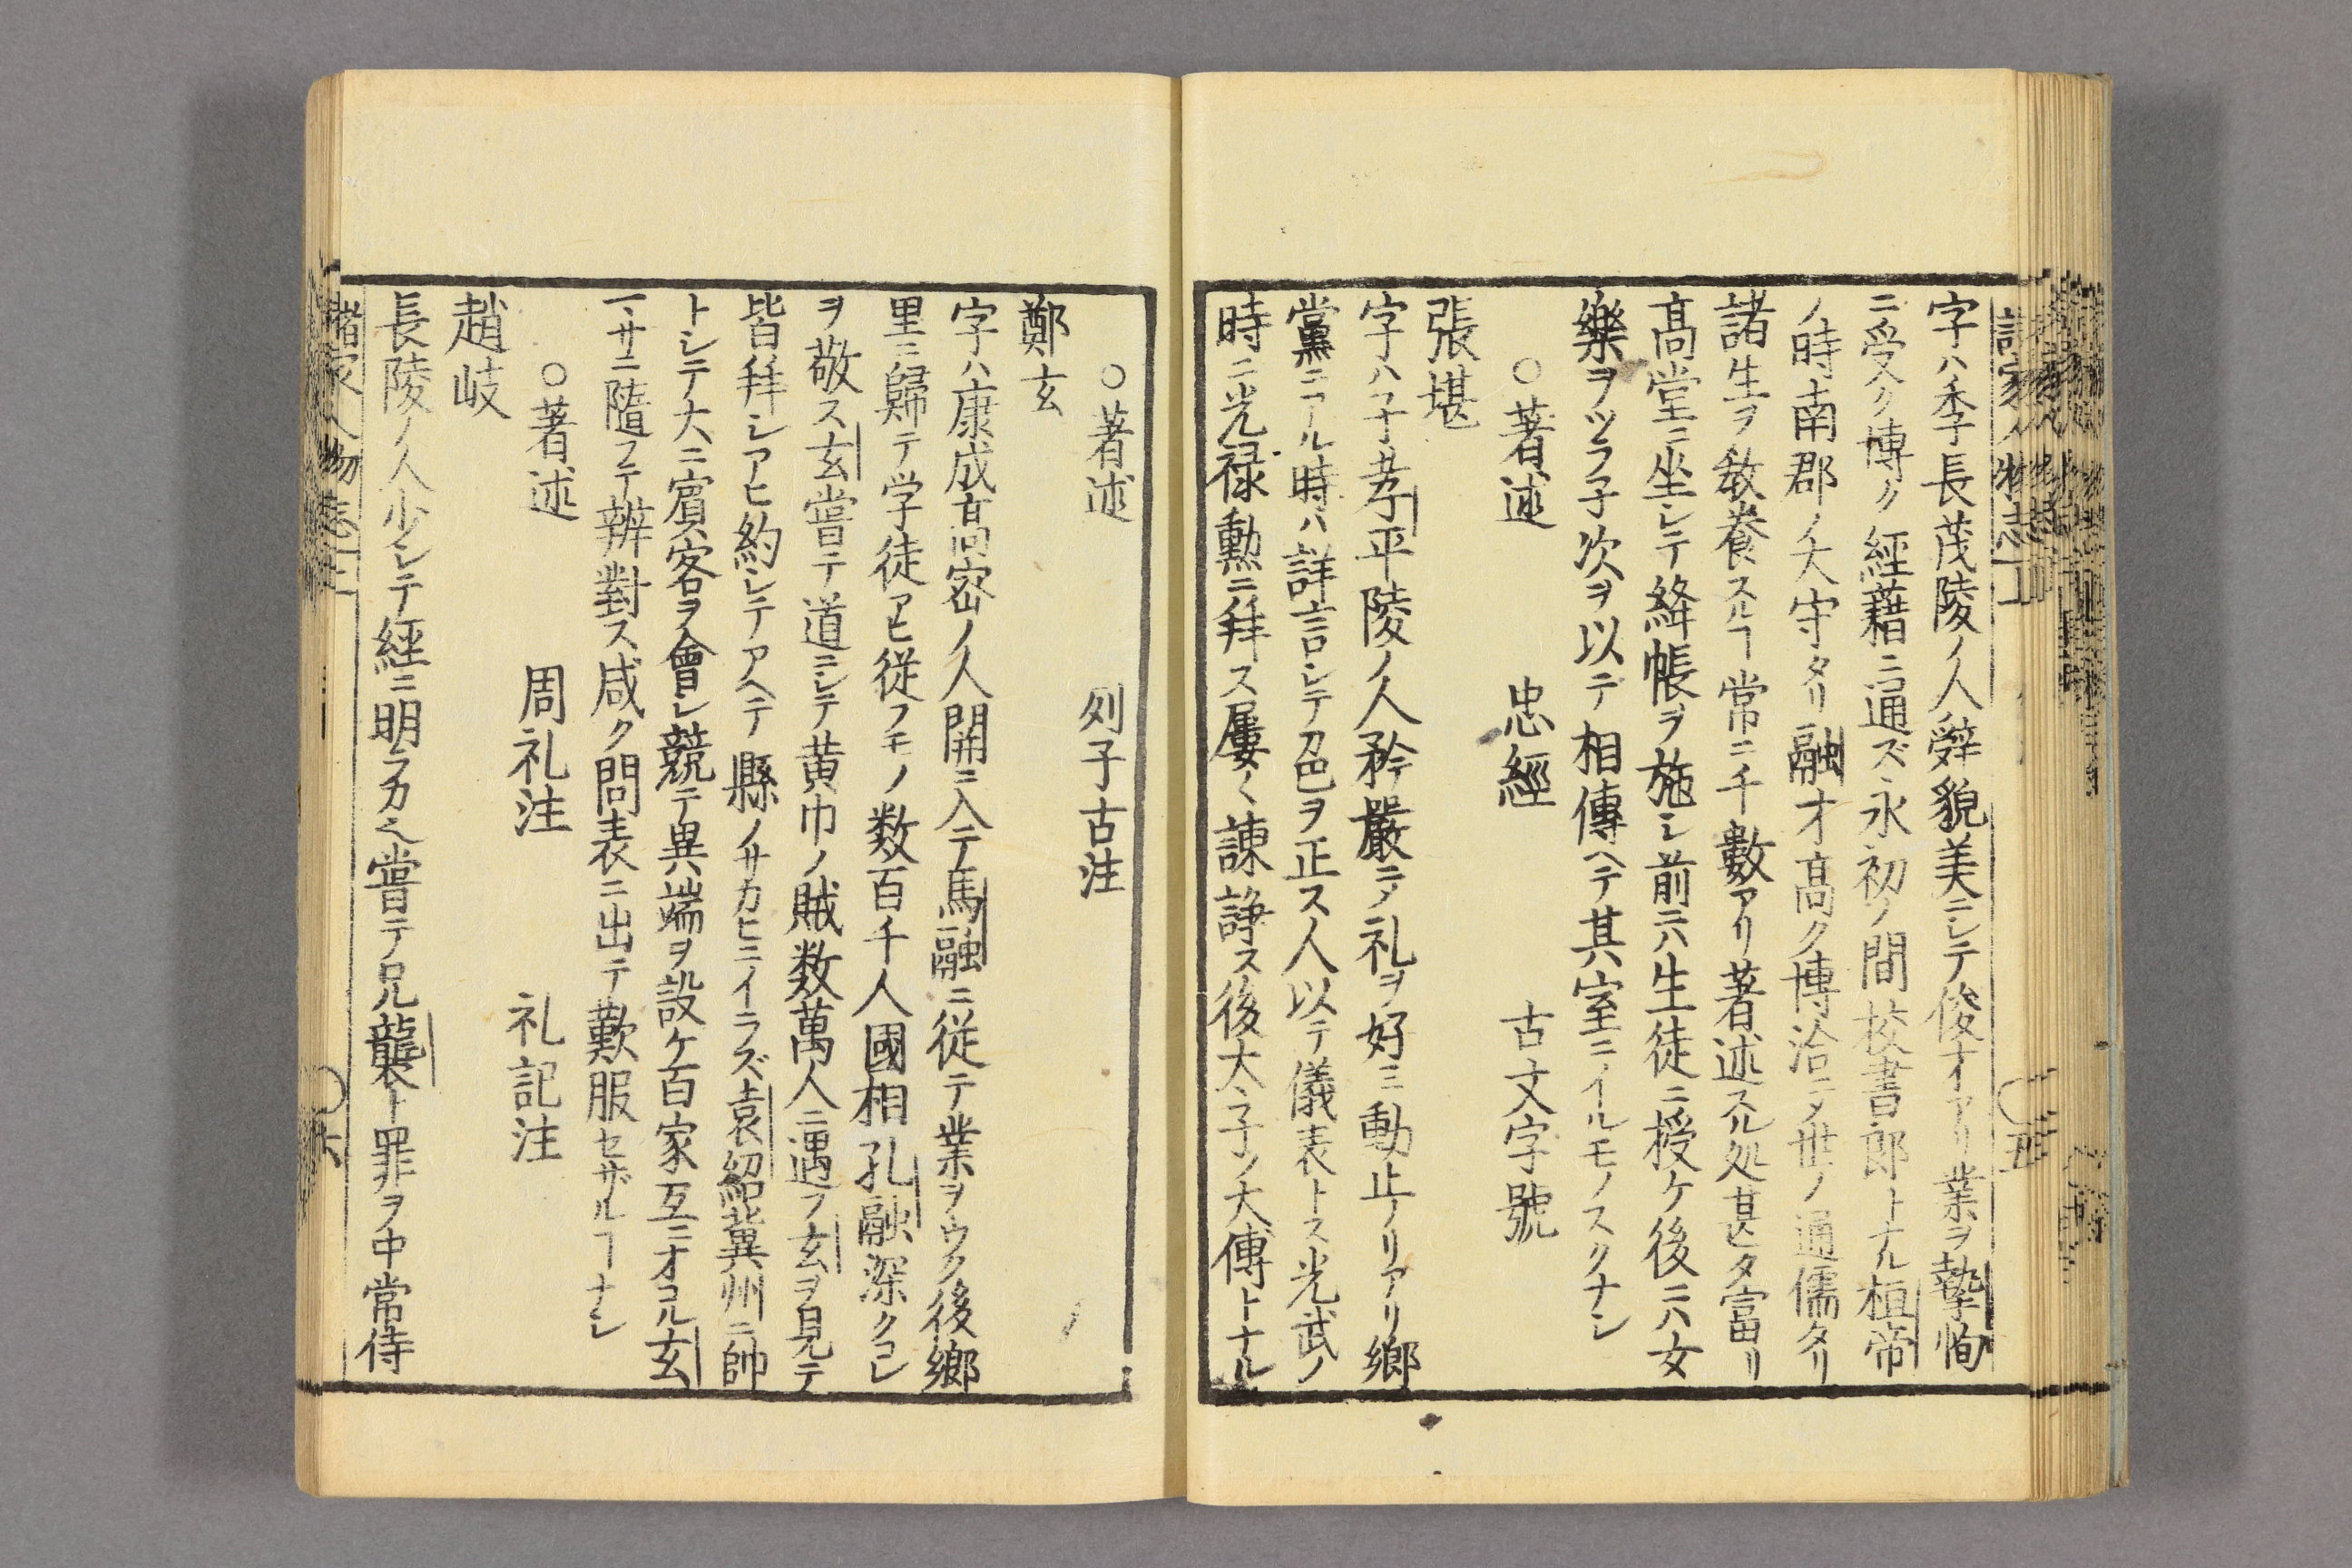 字ハ季長茂陵ノ人辭貌美ニシテ俊才アリ業ヲ摯恂
ニ受ク博ク經藉ニ通ズ永初ノ間校書郎トナル桓帝
ノ時南郡ノ大守タリ融才髙ク博洽ニ〆世ノ通儒タリ
諸生ヲ敎養スルヿ常ニ千數アリ著述スル処甚タ富リ
髙堂ニ坐シテ絳帳ヲ施シ前ニハ生徒ニ授ケ後ニハ女
樂ヲツラ子次ヲ以テ相傳ヘテ其室ニイルモノスクナシ
○著述 忠經 古文字號
張堪
字ハ子孝平陵ノ人矜嚴ニ〆礼ヲ好ミ動止ノリアリ鄉
黨ニアル時ハ詳言シテ色ヲ正ス人以テ儀表トス光武ノ
時ニ光禄勳ニ拜ス屢〻諌諍ス後大子ノ大傅トナル
○著述 列子古注
鄭玄
字ハ康成髙密ノ人開ニ入テ馬融ニ從テ業ヲウク後鄉
里ニ歸テ学徒アヒ從フモノ数百千人國相孔融深クコレ
ヲ敬ス玄嘗テ道ニシテ黄巾ノ賊数萬人ニ遇フ玄ヲ見テ
皆拜シアヒ約シテアヘテ縣ノサカヒニイラズ袁紹冀州ニ帥
トシテ大ニ賓客ヲ會シ競テ異端ヲ設ケ百家互ニオコル玄
一サニ隨フテ辨對ス咸ク問表ニ出テ歎服セザルヿナシ
○著述 周礼注 礼記注
趙岐
長陵ノ人少シテ經ニ明ラカ也嘗テ兄襲ト罪ヲ中常侍
諸家人物志